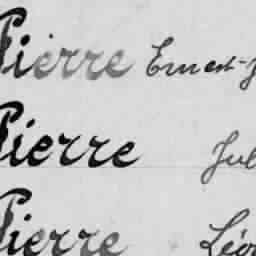 Pierre Ernest-J
Pierre Jul
Pierre Léo